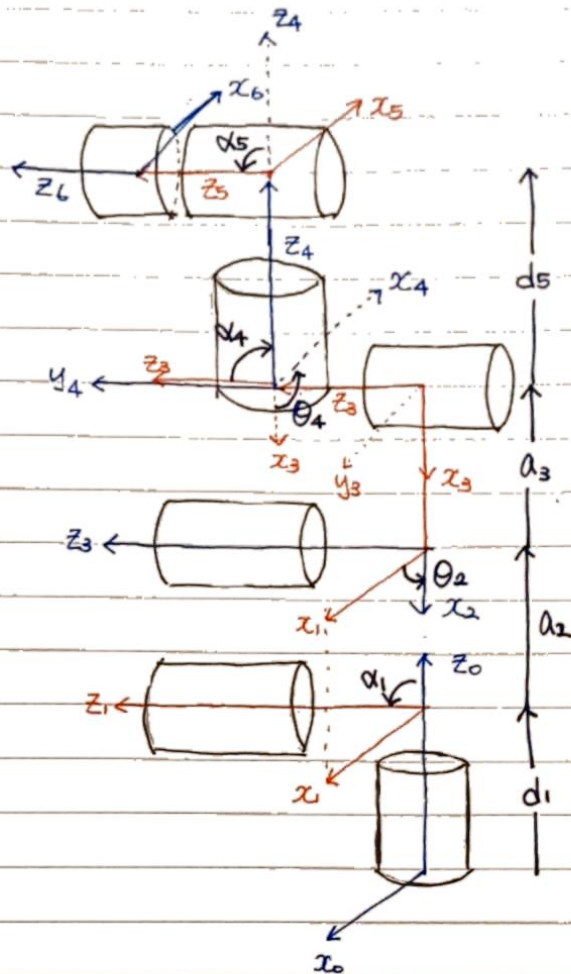 z4
x6
x5
α5
z6
z5
z4
d5
x4
α4
z3
y4
z3
θ4
x3
y3
x3
a3
z3
θ2
x2
x1
a2
z0
α1
z1
x1
d1
x0